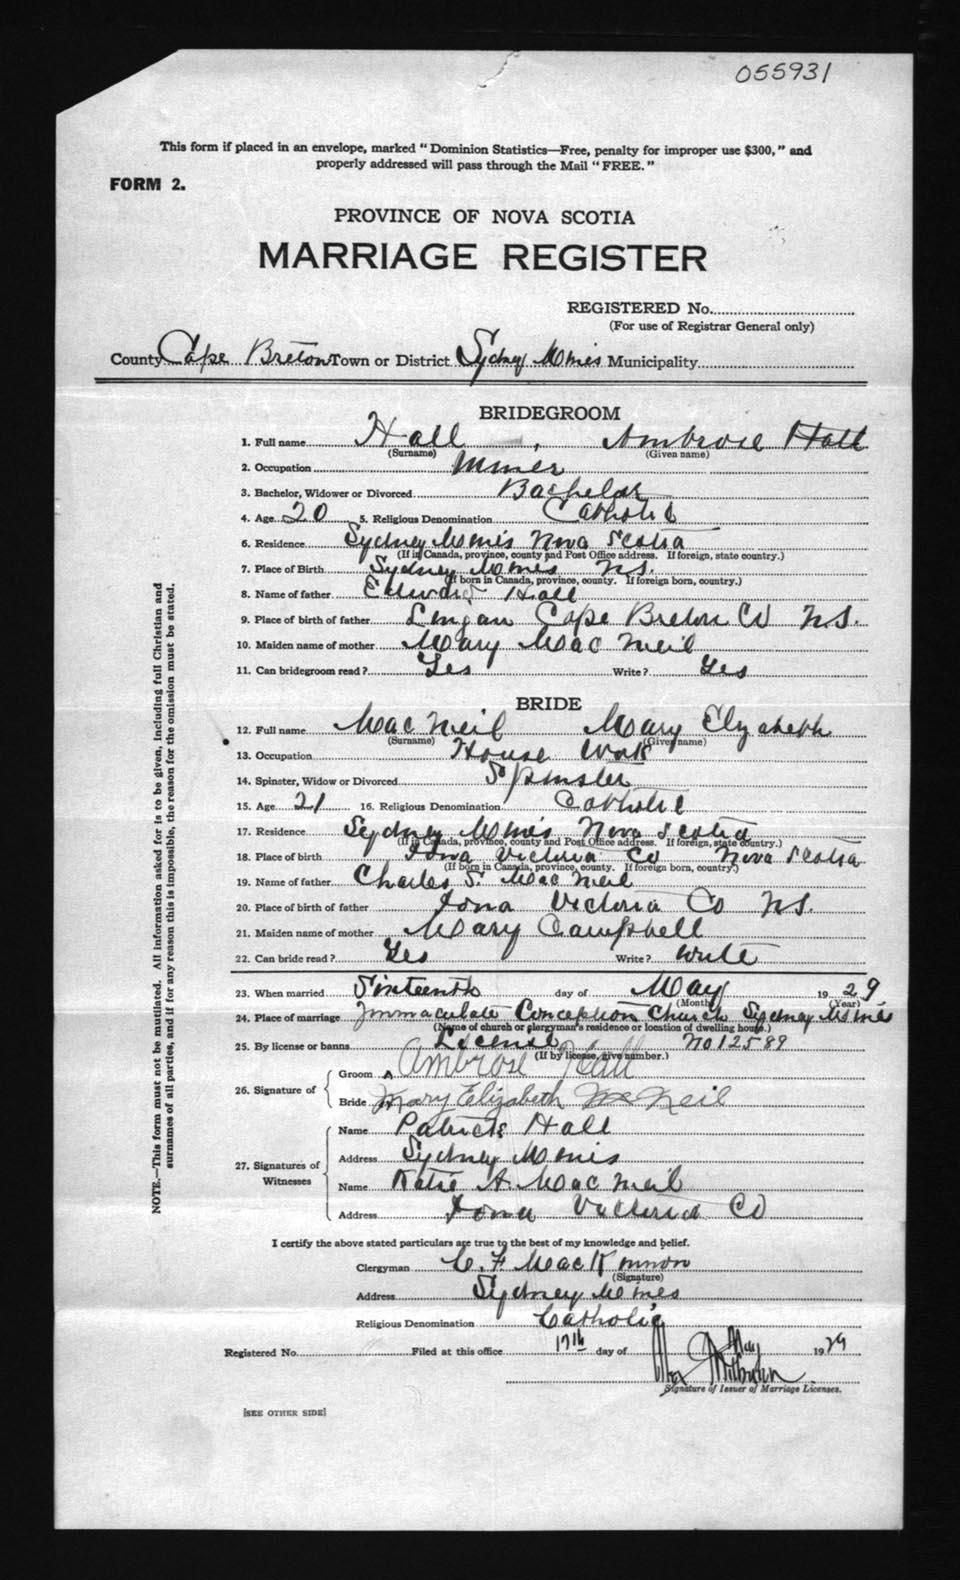 055931
This form if placed in an envelope, marked "Dominion Statistics—Free, penalty for improper use $300," and
properly addressed will pass through the Mail "FREE."
FORM 2.
PROVINCE OF NOVA SCOTIA
MARRIAGE REGISTER
REGISTERED No.
(For use of Registrar General only)
County Cape Breton Town or District Sydney Mines Municipality
BRIDEGROOM
1. Full name Hall, Ambrose Hall
(Surname) (Given name)
2. Occupation Miner
3. Bachelor, Widower or Divorced Bachelor
4. Age 20 5. Religious Denomination Catholic
6. Residence Sydney Mines Nova Scotia
(If in Canada, province, county and Post Office address. If foreign, state country.)
7. Place of Birth Sydney Mines N.S.
(If born in Canada, province, county. If foreign born, country.)
8. Name of father Edward Hall
9. Place of birth of father Lingan Cape Breton Co N.S.
10. Maiden name of mother Mary Mac Neil
11. Can bridegroom read? Yes Write? Yes
BRIDE
12. Full name Mac Neil Mary Elizabeth
(Surname) (Given name)
13. Occupation House Work
14. Spinster, Widow or Divorced Spinster
15. Age 21 16. Religious Denomination Catholic
17. Residence Sydney Mines Nova Scotia
(If in Canada, province, county and Post Office address. If foreign, state country.)
18. Place of birth Iona Victoria Co Nova Scotia
(If born in Canada, province, county. If foreign born, country.)
19. Name of father Charles S. Mac Neil
20. Place of birth of father Iona Victoria Co N.S.
21. Maiden name of mother Mary Campbell
22. Can bride read? Yes Write? write
23. When married Sixteenth day of May 1929
(Month) (Year)
24. Place of marriage Immaculate Conception Church Sydney Mines
(Name of church or clergyman's residence or location of dwelling house.)
25. By license or banns License No 12589
(If by license, give number.)
26. Signature of
Groom Ambrose Hall
Bride Mary Elizabeth Mc Neil
27. Signatures of Witnesses
Name Patrick Hall
Address Sydney Mines
Name Katie A. Mac Neil
Address Iona Victoria Co
I certify the above stated particulars are true to the best of my knowledge and belief.
Clergyman C. F. MacKinnon
(Signature)
Address Sydney Mines
Religious Denomination Catholic
Registered No. Filed at this office 17th day of May 1929
Signature of Issuer of Marriage Licenses.
[SEE OTHER SIDE]
NOTE.—This form must not be mutilated. All information asked for is to be given, including full Christian and
surnames of all parties, and if for any reason this is impossible, the reason for the omission must be stated.